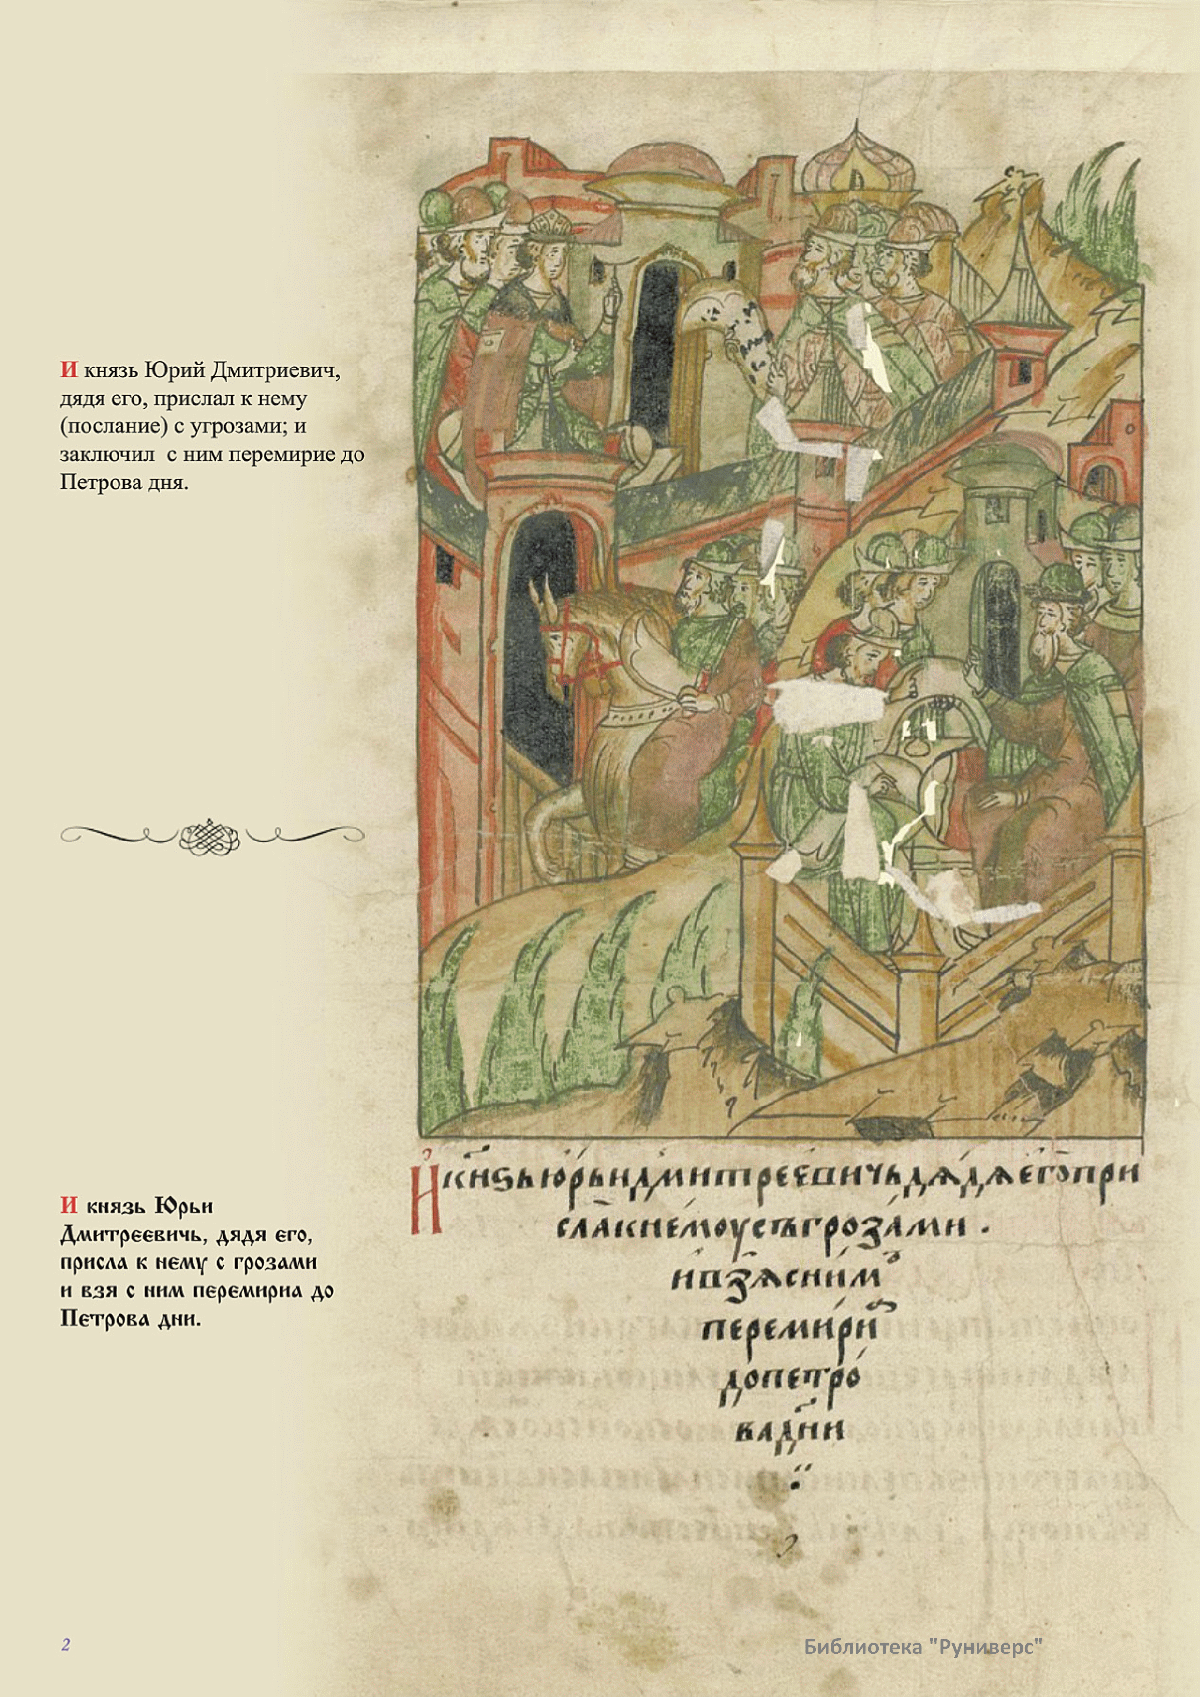 И князь Юрий Дмитриевич,
дядя его, прислал к нему
(послание) с угрозами; и
заключил с ним перемирие до
Петрова дня.
И князь Юрьи
Дмитреевичь, дядя его,
присла к нему с грозами
и взя с ним перемириа до
Петрова дни.
И кн҃зь юрьи дмитреевичь дѧдѧ его при
сла к немоу съ грозами .
и взѧ с ним
перемири
до петро
ва дн҃и
2
Библиотека "Руниверс"